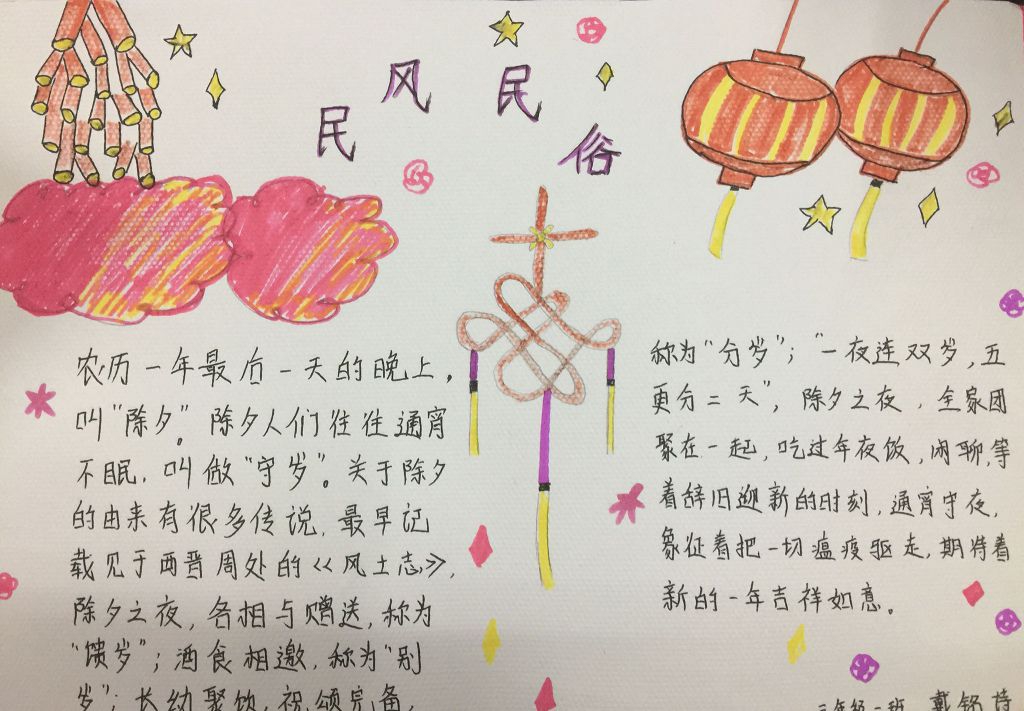 民风民俗
农历一年最后一天的晚上,
叫“除夕”。除夕人们往往通宵
不眠,叫做“守岁”。关于除夕
的由来有很多传说,最早记
载见于西晋周处的《风土志》,
除夕之夜,各相与赠送,称为
“馈岁”;酒食相邀,称为“别
岁”;长幼聚饮,祝颂完备,
称为“分岁”;“一夜连双岁,五
更分二天”,除夕之夜,全家团
聚在一起,吃过年夜饭,闲聊,等
着辞旧迎新的时刻,通宵守夜,
象征着把一切瘟疫驱走,期待着
新的一年吉祥如意。
二年级一班 戴铭诗